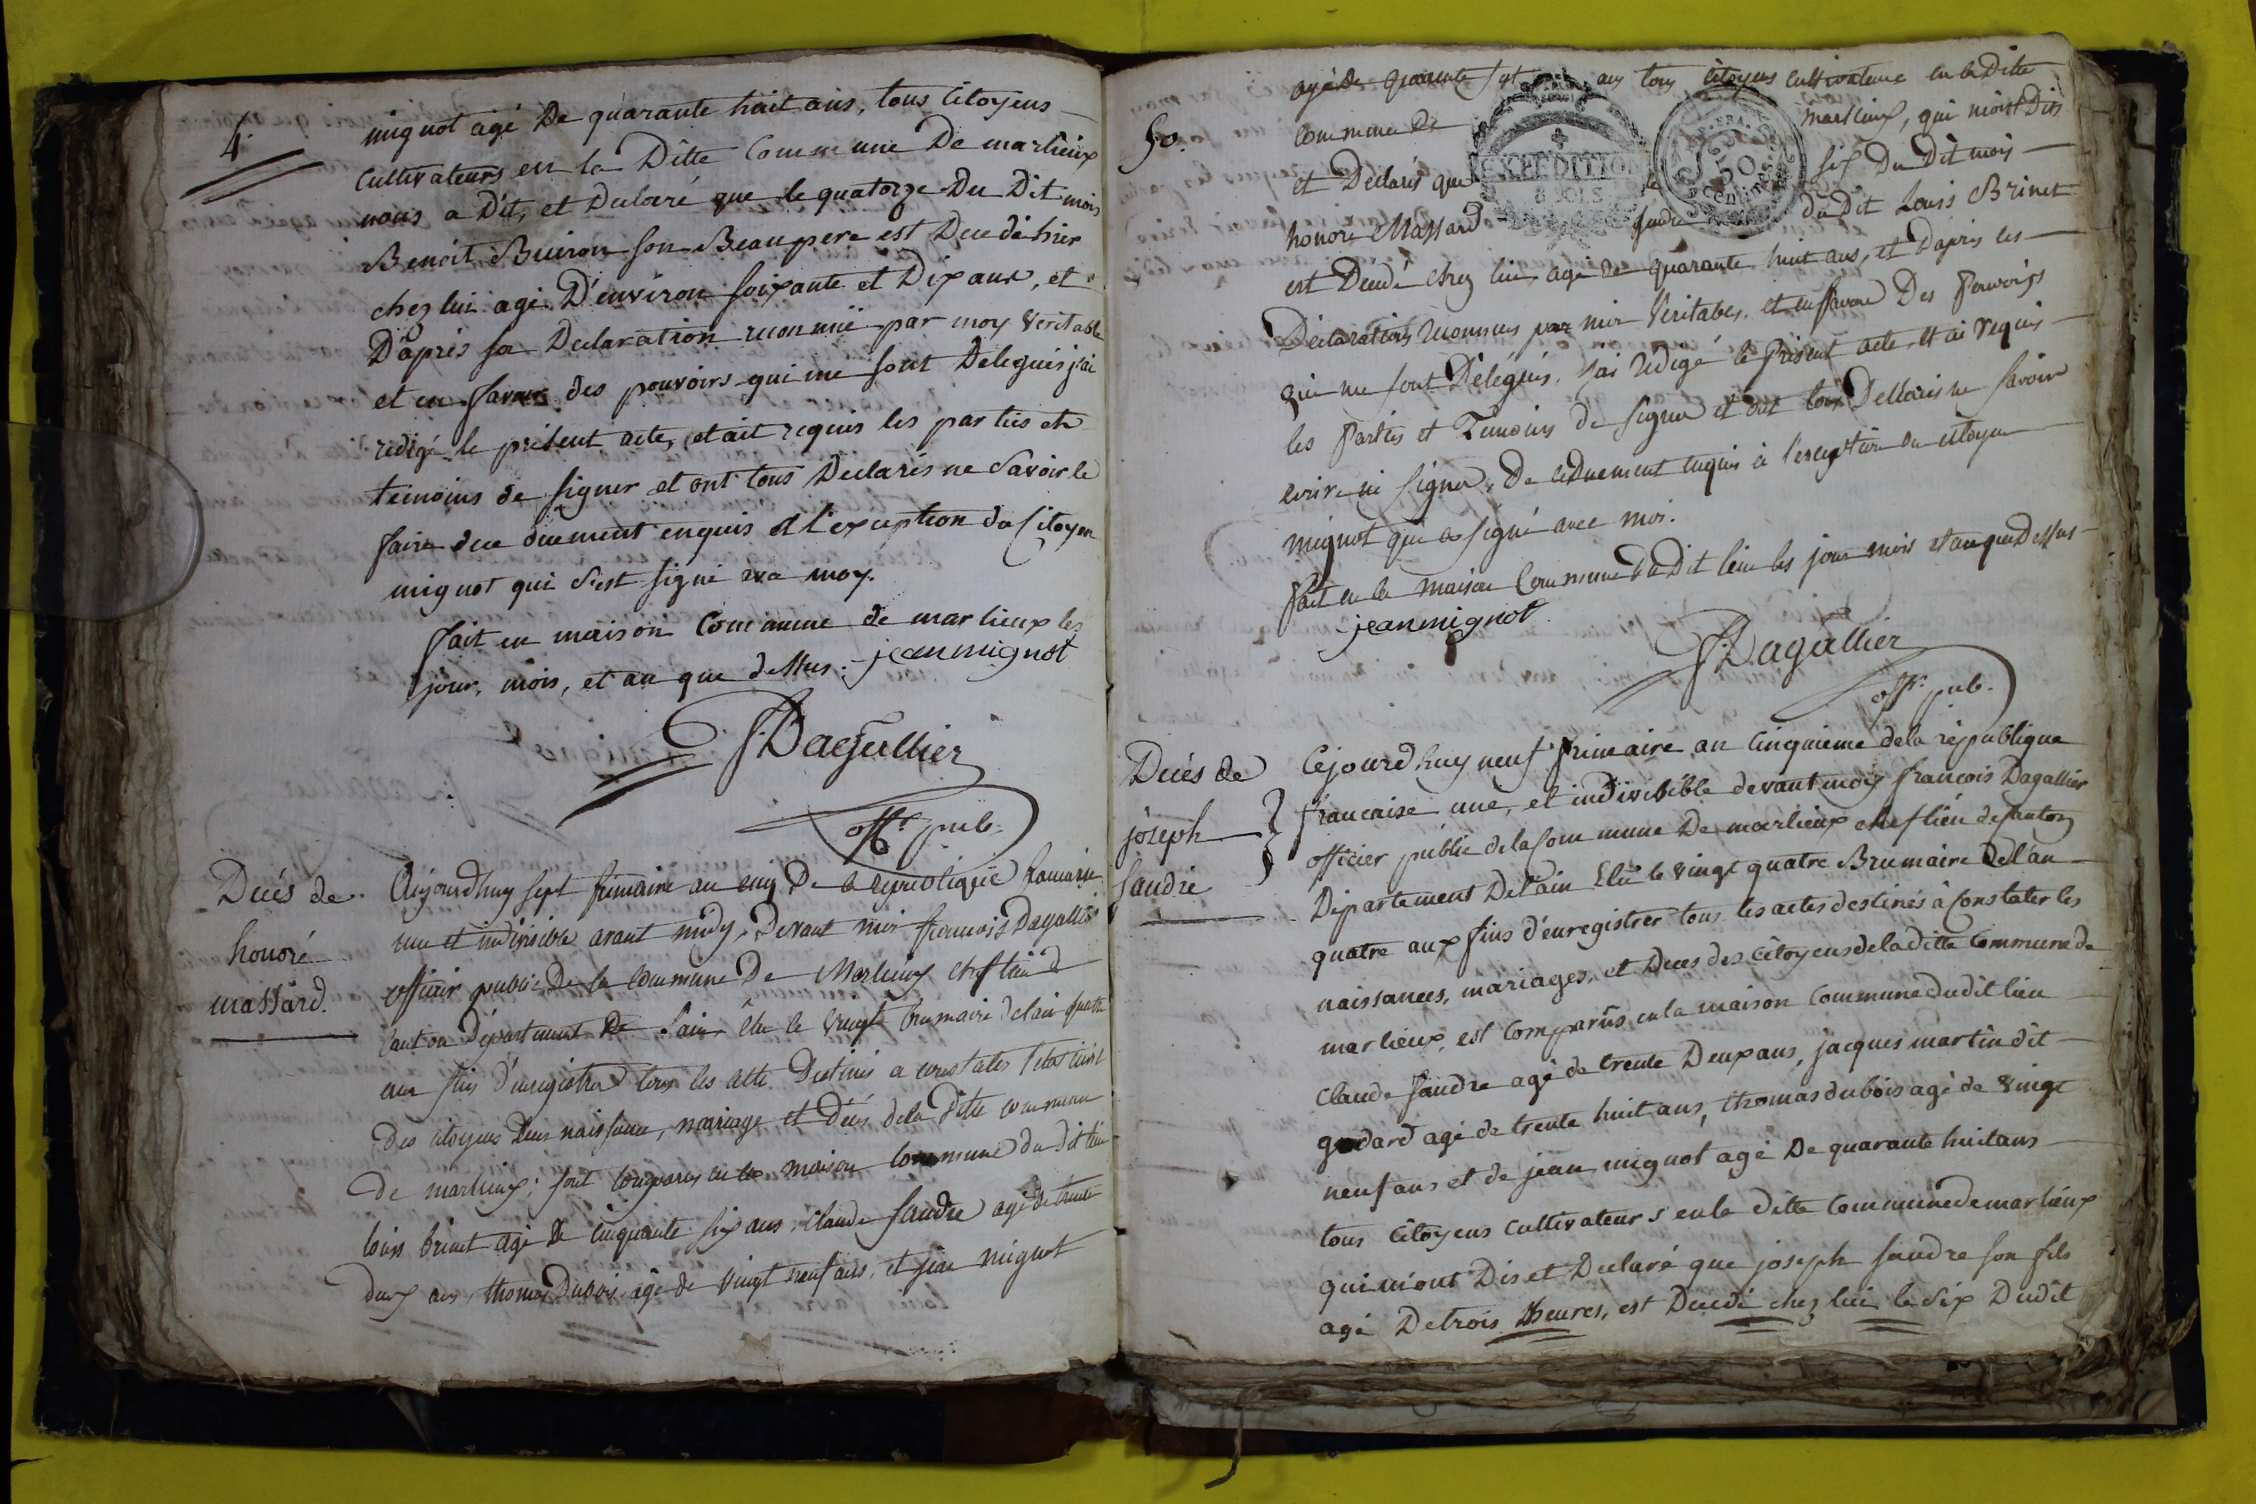 4.
mignot agé De quarante huit ans, tous Citoyens
Cultivateurs en la Ditte Commune De marlieux
nous a Dit, et Declaré que le quatorze Du Dit mois
Benoit Buiron son Beaupere est Decedé hier
chez lui agé D'environ soixante et Dix ans, et
D'apres sa Declaration reconnüe par moy veritable
et en faveur des pouvoirs qui me sont Delegués j'ai
redigé le présent acte, et ait requis les parties et
temoins de signer et ont tous Declarés ne savoir le
faire de ce duement enquis a l'exception du Citoyen
mignot qui s'est signé avec moy.
fait en maison Commune de marlieux les
jour, mois, et an que dessus. jean mignot
f. Dagallier
off. pub.
Décés de
honoré
massard.
Aujourdhuy sept frimaire an cinq De la republique francaise
une et indivisible avant midy, Devant moi francois Dagallier
officier public De la commune De Marlieux chef lieu de
canton Département De Lain élu le vingt brumaire de lan quatre
aux fins d'enregistrer tous les acte Destinés a constater
Des citoyens naissance, mariage et décés dela ditte commune
De marlieux; sont comparus en la maison commune du dit lieu
louis brinet agé De cinquante six ans, claude sandre agé de trente
deux ans, thomas Dubois agé de vingt neuf ans, et jean mignot
50.
agé de quarante ans tous Citoyens cultivateurs en la Ditte
commune De marlieux, qui m'ont Dits
et Declarés que le six Du Dit mois
honoré Massard du Dit Louis Brinet
est Décédé chez lui, agé de quarante huit ans, et Dapres les
Déclarations reconnues par moi Veritables, et en faveur Des Pouvoirs
qui me sont Délégués, j'ai redigé le présent acte, et ai requis
les Parties et Temoins de signer et ont tous Dellarés ne savoir
ecrire ni signer, De ce Duement enquis à l'exception du citoyen
mignot qui a signé avec moi.
fait en la maison Commune du Dit lieu les jour mois et an que Dessus
EXPÉDITION
8 SOLS
50
Centimes
jean mignot
f. Dagallier
off. pub.
Décés de
joseph
sandre
Cejourdhuy neuf frimaire an Cinquieme de la république
francaise une, et indivisible devant moy francois Dagallier
officier public de la Commune De marlieux chef lieu de canton
Département De l'ain Elu le vingt quatre Brumaire De l'an
quatre aux fins d'enregistrer tous les actes destinés à Constater les
naissances, mariages, et Deces des Citoyens de la ditte Commune de
marlieux, est Comparus en la maison Commune dudit lieu
Claude sandre agé de trente Deux ans, jacques martin dit
godard agé de trente huit ans, thomas dubois agé de vingt
neuf ans et de jean mignot agé De quarante huit ans
tous Citoyens Cultivateurs en la ditte Commune de marlieux
qui m'ont Dis et Declaré que joseph sandre son fils
agé De trois Heures, est Decedé chez lui le six Dudit